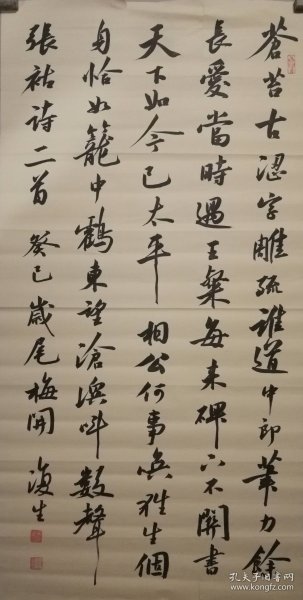 蒼苔古澀字雕疏誰道中郎筆力餘
長愛當時遇王粲每來碑下不關書
天下如今已太平相公何事喚狂生個
身恰如籠中鶴東望滄溟叫數聲
張祜詩二首 癸巳歲尾梅開 生
孔夫子旧书网